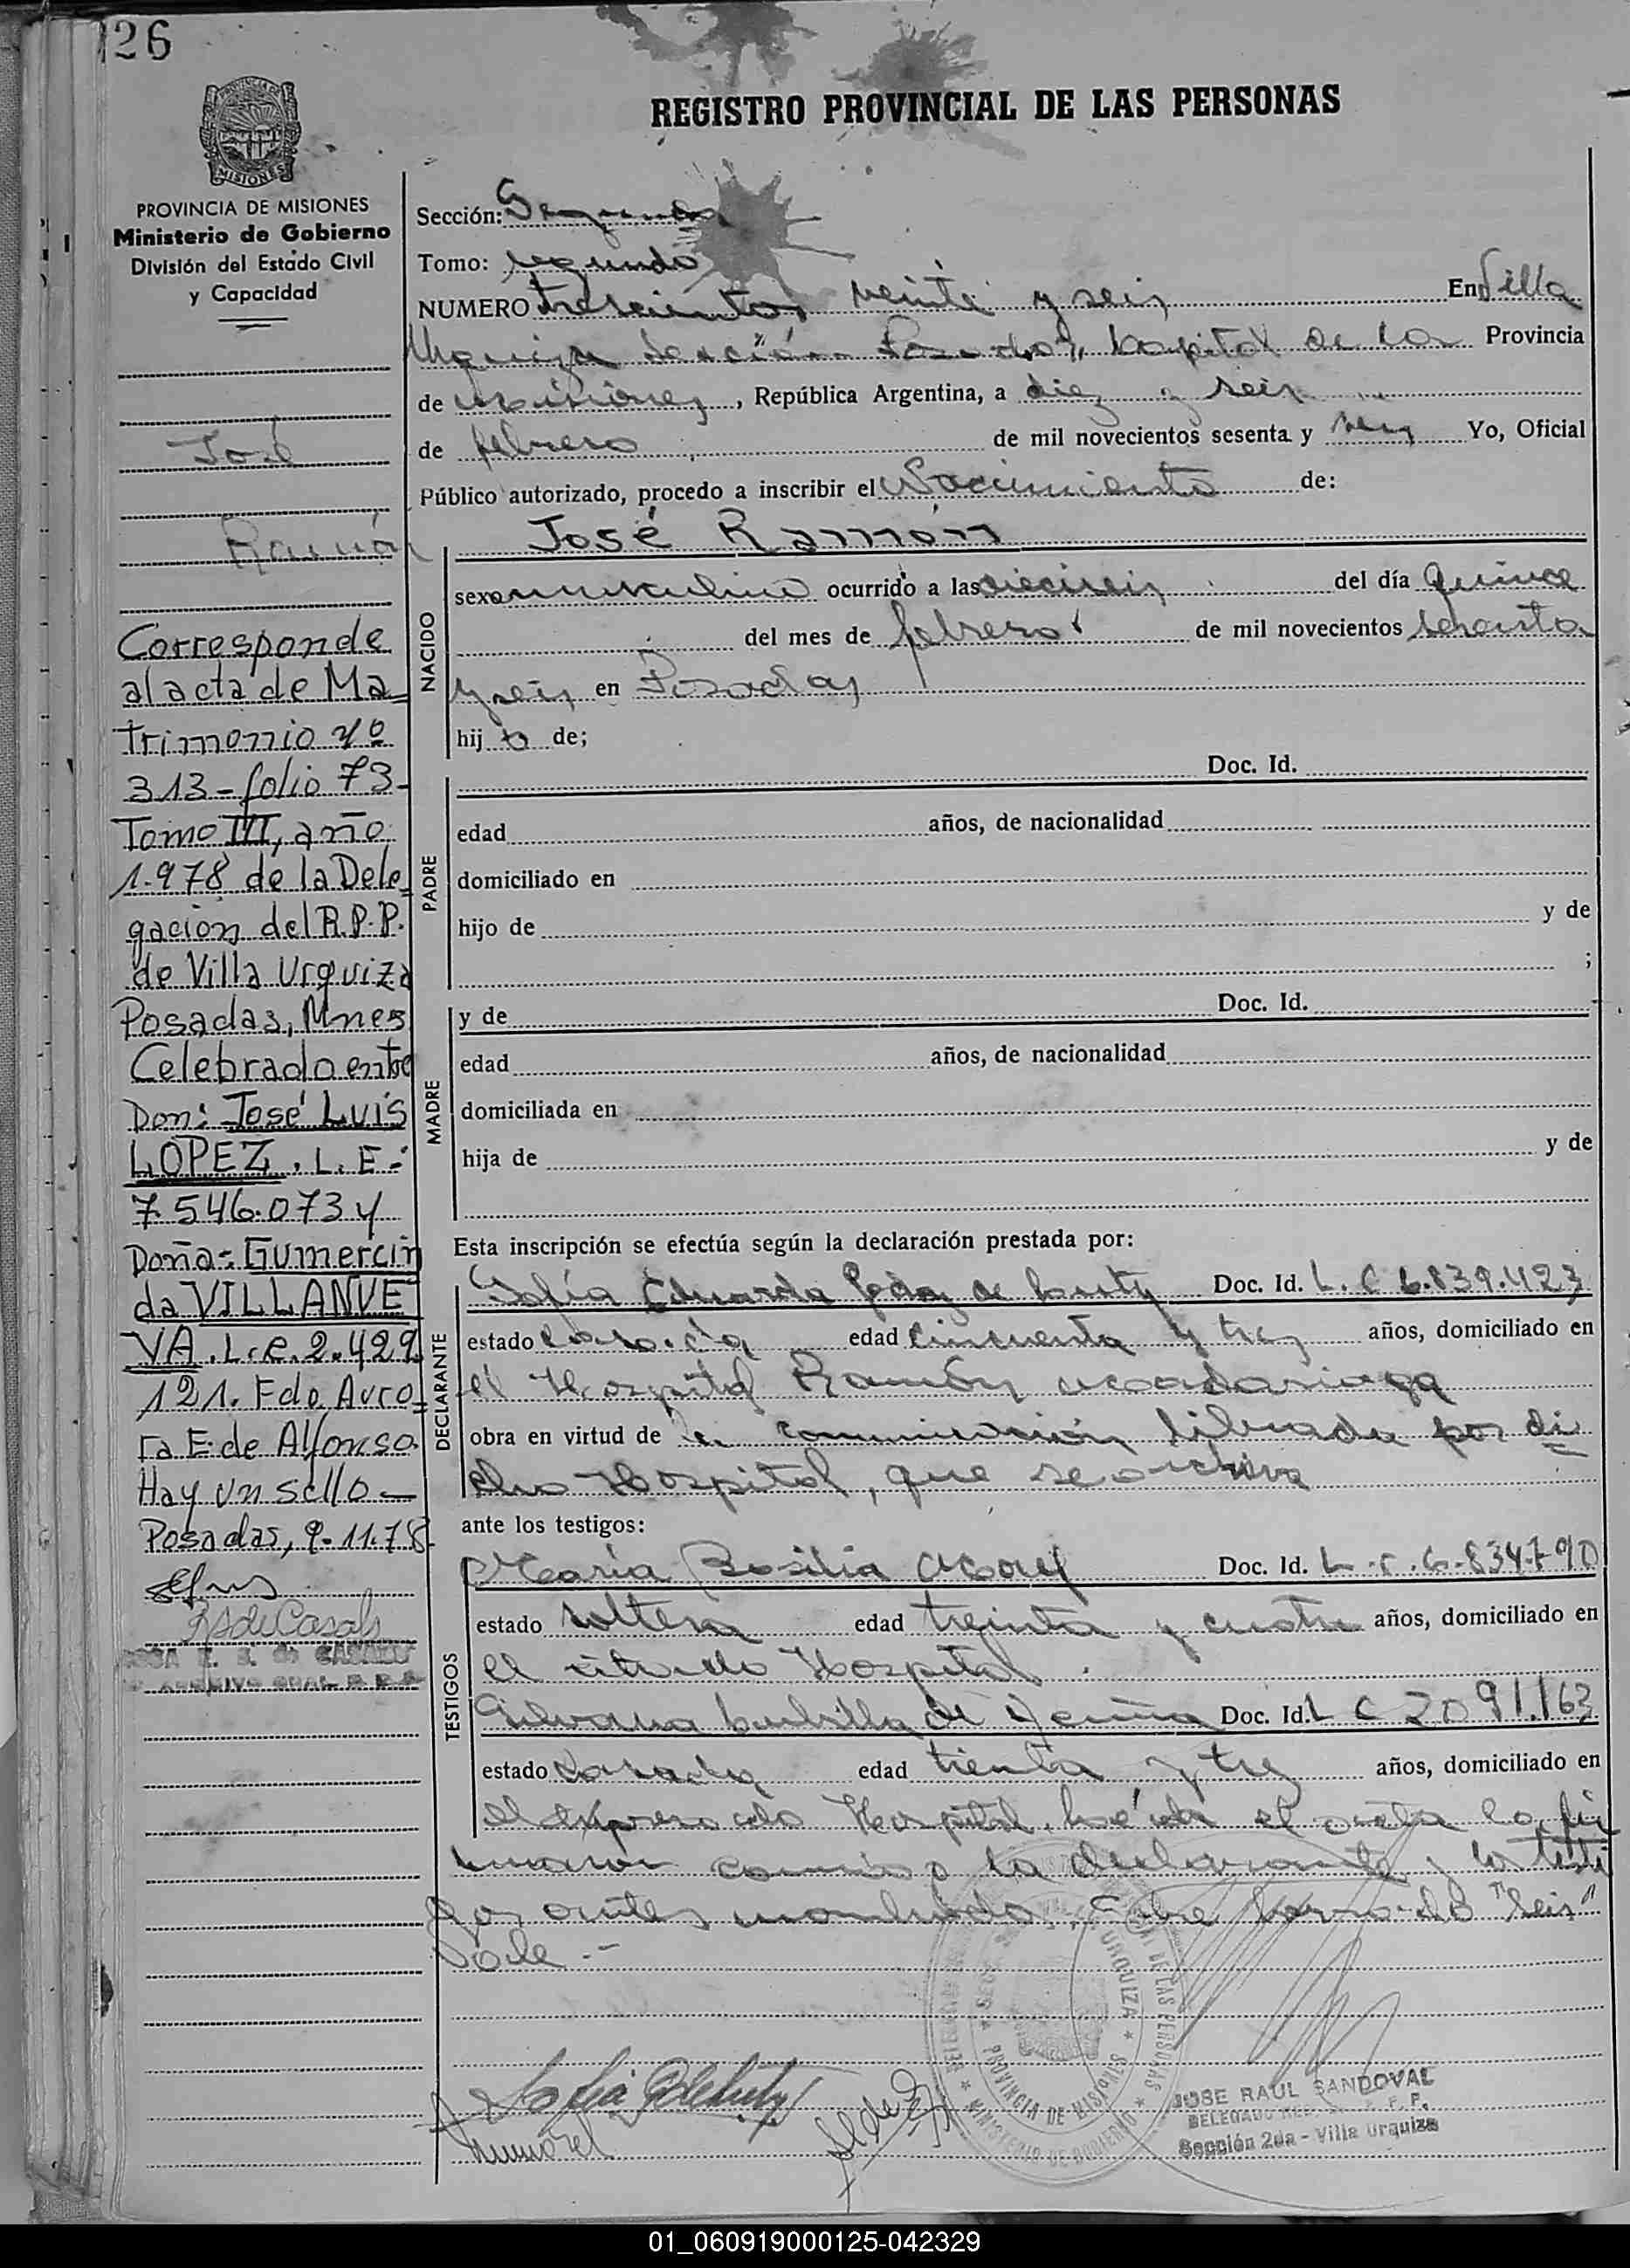 126
REGISTRO PROVINCIAL DE LAS PERSONAS
MISIONES
PROVINCIA DE MISIONES
Ministerio de Gobierno
División del Estado Civil
y Capacidad
José
Ramón
Corresponde
al acta de Ma
trimonio Nº
313 - folio 73-
Tomo III, año
1.978 de la Dele
gación del R.P.P.
de Villa Urquiza
Posadas, Mnes
Celebrado entre
Don: José Luis
LOPEZ. L.E:
7.546.073 y
Doña: Gumercin
da VILLANUE
VA. L.C. 2.429
121. Fdo. Auro
ra E. de Alfonso
Hay un sello -
Posadas, 9-11-78
Sección: Segunda
Tomo: segundo
NUMERO trescientos veinte y seis En Villa
Urquiza Sección Posadas, Capital de la Provincia
de Misiones, República Argentina, a diez y seis
de febrero de mil novecientos sesenta y seis Yo, Oficial
Público autorizado, procedo a inscribir el Nacimiento de:
José Ramón
NACIDO
sexo masculino ocurrido a las dieciseis del día Quince
del mes de febrero de mil novecientos sesenta
y seis en Posadas
hijo de;
PADRE
Doc. Id.
edad años, de nacionalidad
domiciliado en
hijo de y de
;
MADRE
y de Doc. Id.
edad años, de nacionalidad
domiciliada en
hija de y de
Esta inscripción se efectúa según la declaración prestada por:
DECLARANTE
Sofía Eduarda de Doc. Id. L. C 6.839.423
estado casada edad cincuenta y tres años, domiciliado en
el Hospital Ramón Madariaga
obra en virtud de la comunicación librada por di
cho Hospital, que se archiva
ante los testigos:
TESTIGOS
María Basilia Doc. Id. L.C. 6.834.790
estado soltera edad treinta y cuatro años, domiciliado en
el citado Hospital
Silvana de Doc. Id. L C 2091.163
estado casada edad treinta y tres años, domiciliado en
el expresado Hospital. Leída el acta la fir
maron conmigo la declarante y los testi
gos antes nombrados. Sobre borrado "Seis"
Vale.-
JOSE RAUL SANDOVAL
Sección 2da - Villa Urquiza
PROVINCIA DE MISIONES
MINISTERIO DE GOBIERNO
01_060919000125-042329